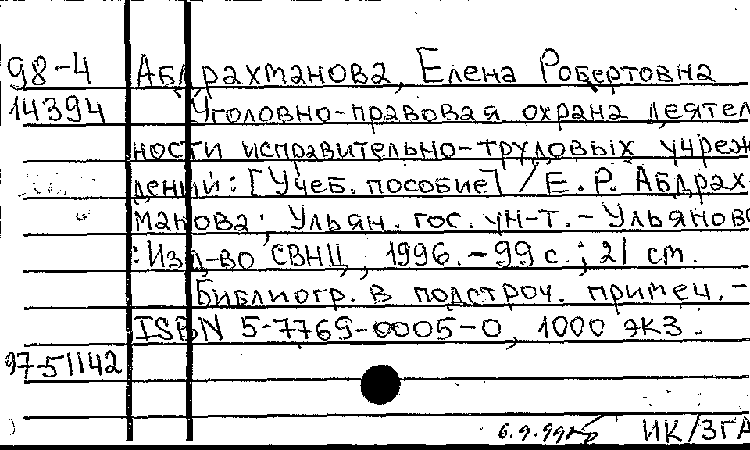 98-4 Абдрахманова, Елена Робертовна
14394 Уголовно-правовая охрана деятель
ности исправительно-трудовых учреж
дений: [Учеб. пособие] / Е. Р. Абдрах-
манова; Ульян. гос. ун-т. - Ульяновс
: Изд-во СВНЦ, 1996. - 99 с.; 21 см.
Библиогр. в подстроч. примеч. -
ISBN 5-7769-0005-0, 1000 экз.
97-51142
6.9.99 ИК/ЗГА